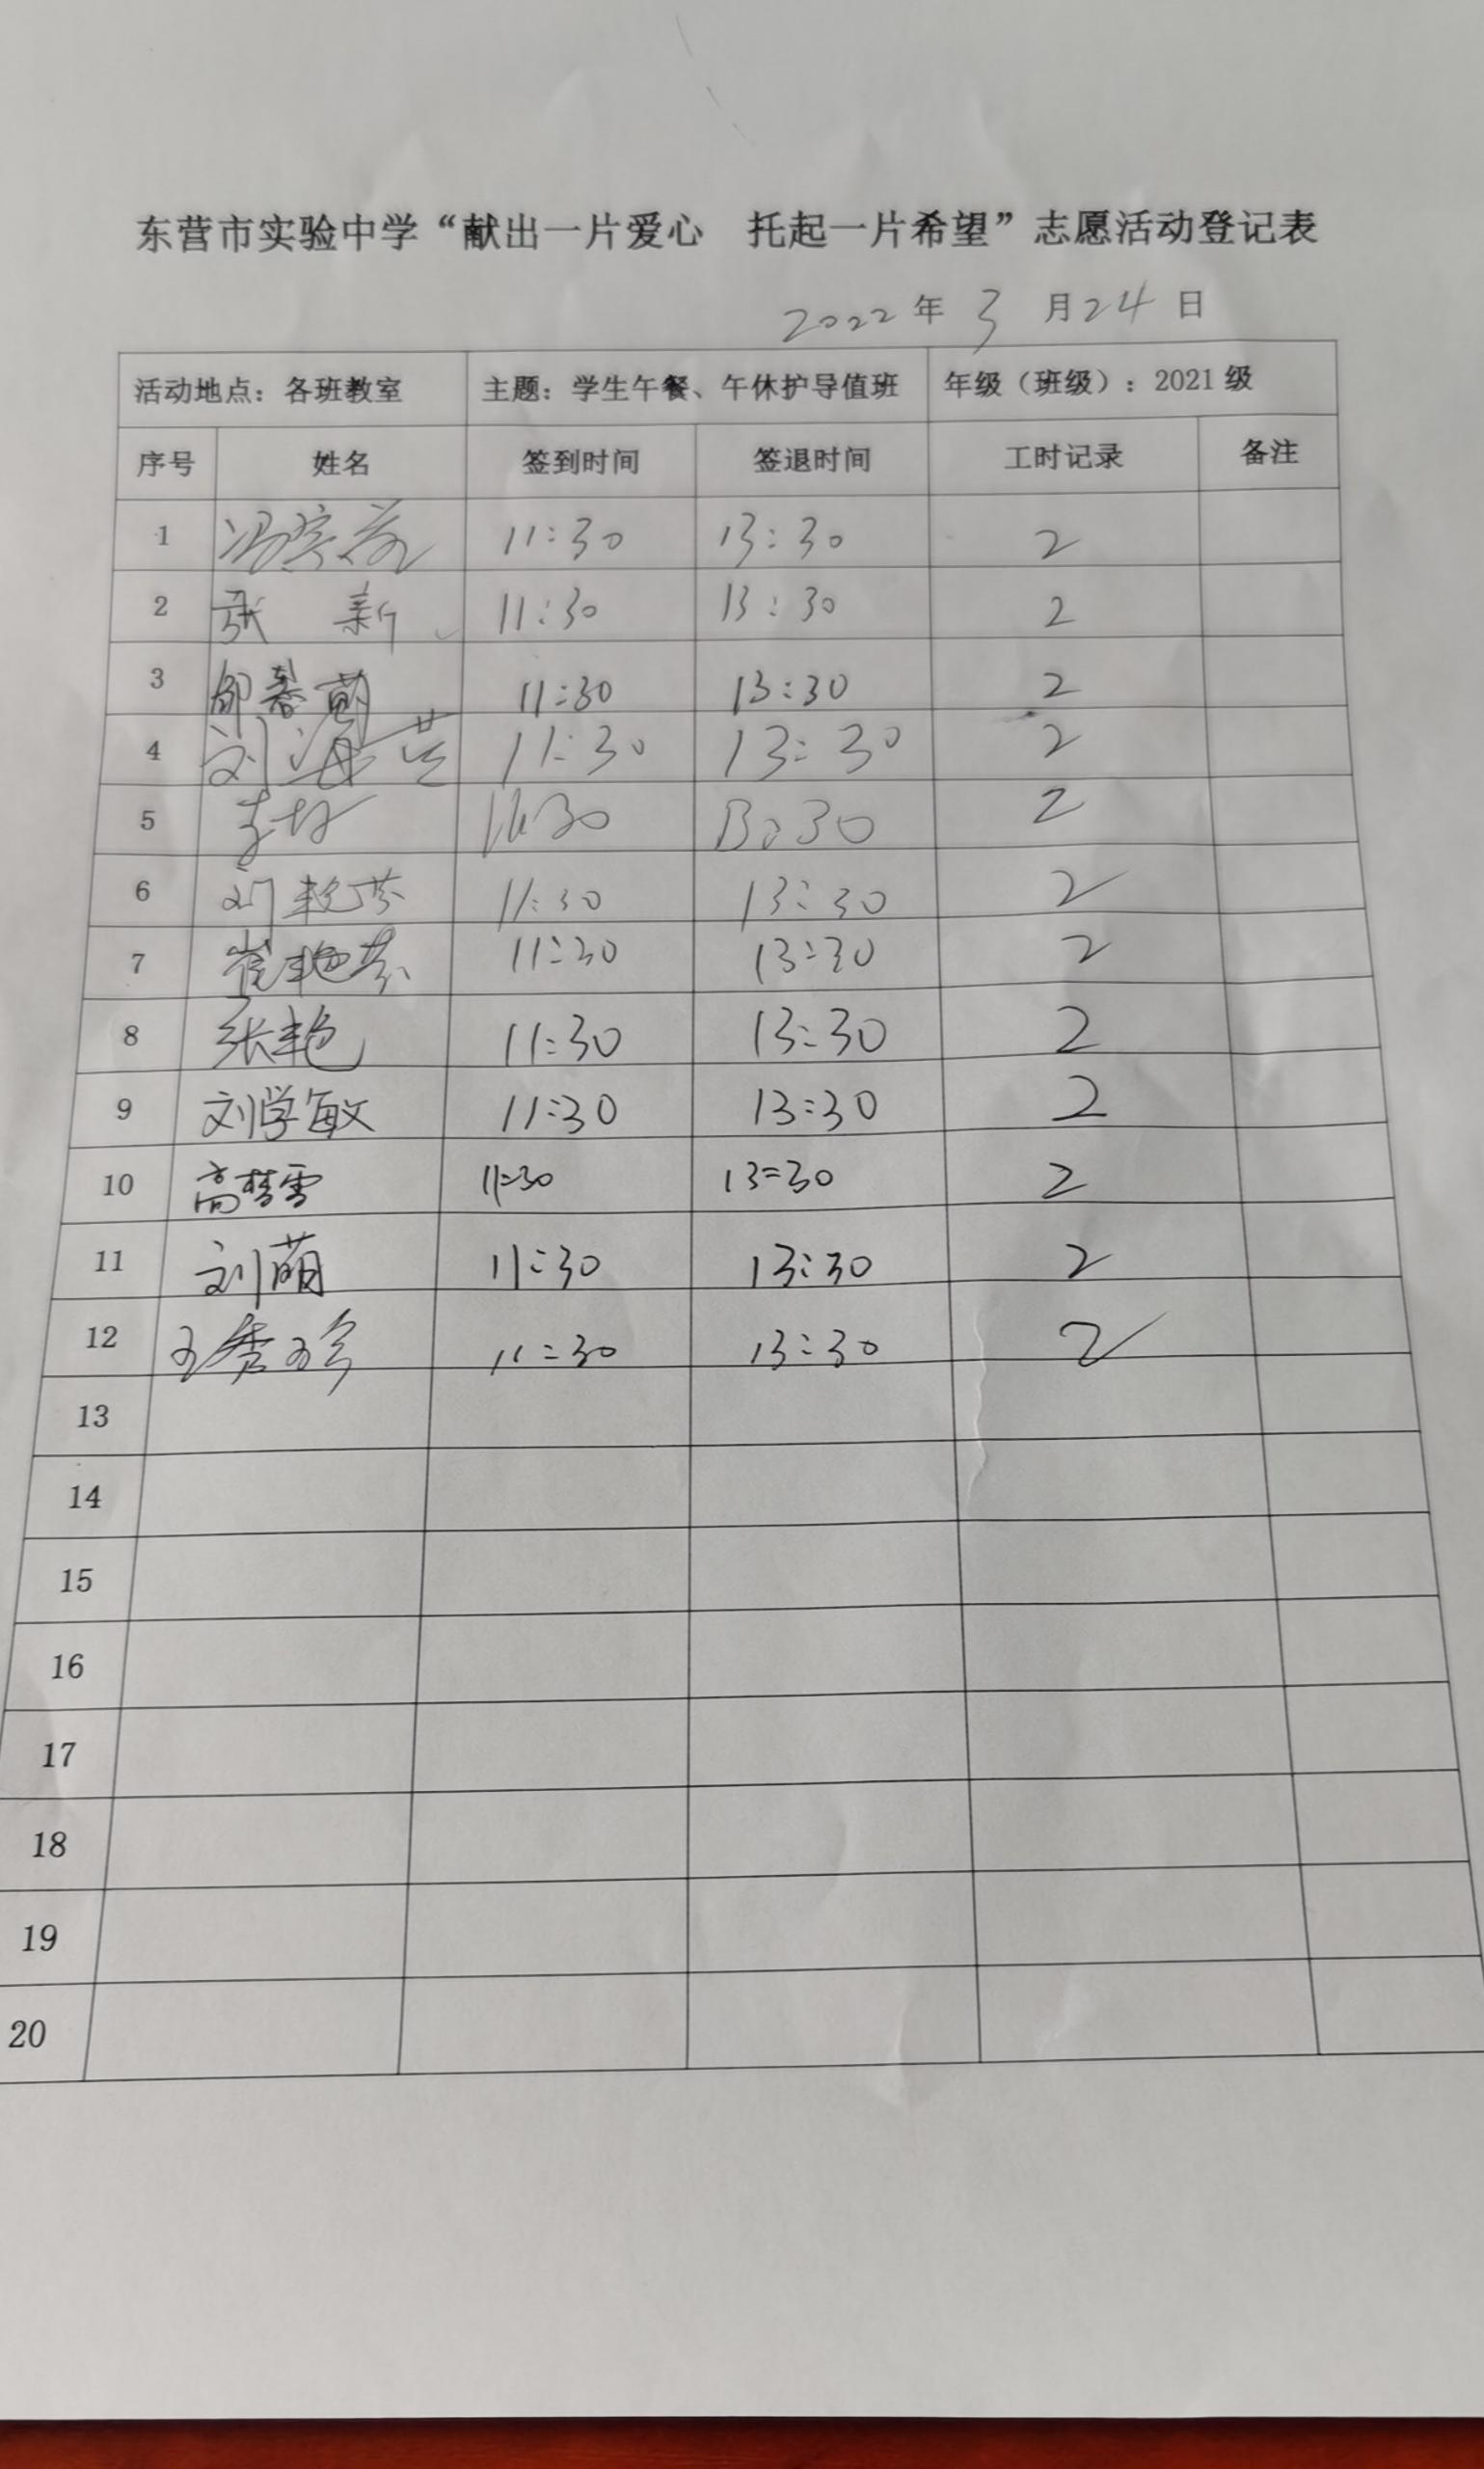 东营市实验中学“献出一片爱心 托起一片希望”志愿活动登记表
2022年 3 月24日
活动地点：各班教室 主题：学生午餐、午休护导值班 年级（班级）：2021级
序号 姓名 签到时间 签退时间 工时记录 备注
1 11:30 13:30 2
2 张 新 11:30 13:30 2
3 11:30 13:30 2
4 刘海芸 11:30 13:30 2
5 11:30 13:30 2
6 刘艳芬 11:30 13:30 2
7 崔艳芬 11:30 13:30 2
8 张艳 11:30 13:30 2
9 刘学敏 11:30 13:30 2
10 高梦雪 11:30 13:30 2
11 刘萌 11:30 13:30 2
12 王秀珍 11:30 13:30 2
13
14
15
16
17
18
19
20